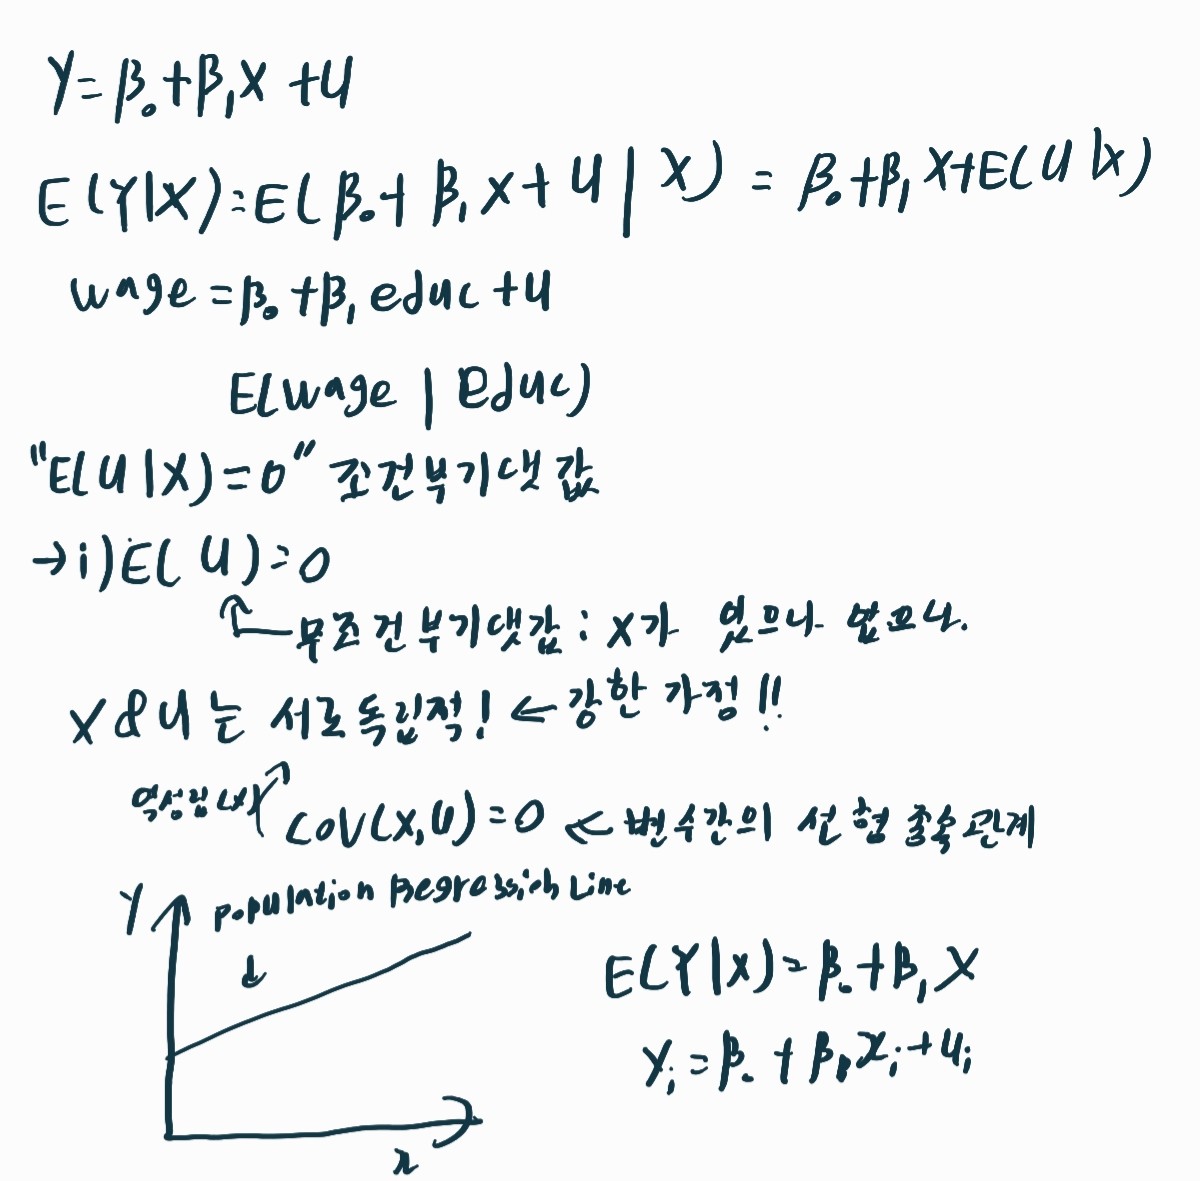 Y=β₀+β₁X+U
E(Y|X)=E(β₀+β₁X+U|X)=β₀+β₁X+E(U|X)
wage=β₀+β₁educ+U
E(wage|Educ)
"E(U|X)=0" 조건부기댓값
→i)E(U)=0
무조건부기댓값: X가 있으나 없으나.
X&U는 서로독립적! ←강한 가정!!
역성립
COV(X,U)=0 ← 변수간의 선형 종속관계
Y
Population Regression Line
E(Y|X)=β₀+β₁X
Yᵢ=β₀+β₁xᵢ+uᵢ
x